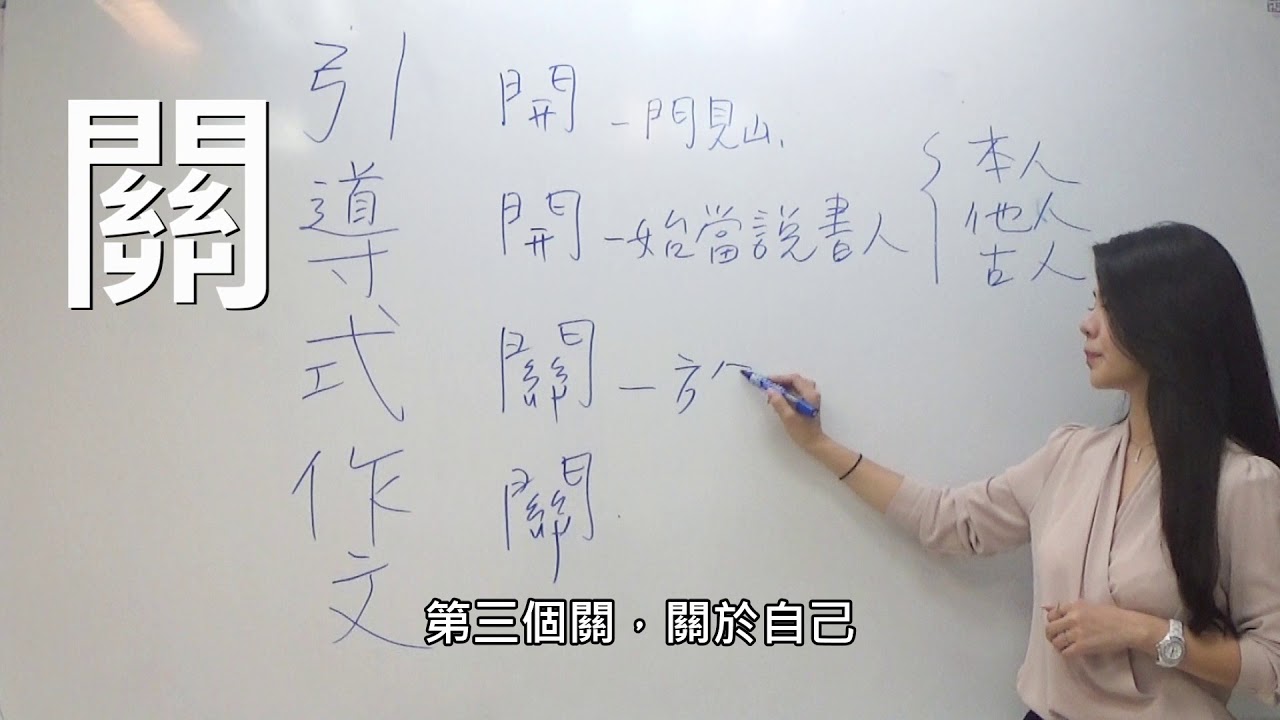 關
引導式作文
開 -門見山.
開 -始當說書人 { 本人
他人
古人
關 - 方
關
第三個關，關於自己